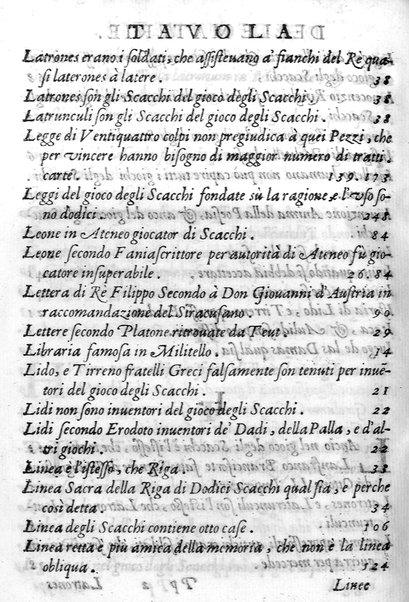 T A V O L A
Latrones erano i soldati, che assisteuano a' fianchi del Re qua
si laterones à latere. 38
Latrones son gli Scacchi del gioco degli Scacchi. 38
Latrunculi son gli Scacchi del gioco degli Scacchi. 38
Legge di Ventiquattro colpi non pregiudica à quei Pezzi, che
per vincere hanno bisogno di maggior numero di tratti
carte. 139. 173
Leggi del gioco degli Scacchi fondate sù la ragione e l'vso so
no dodici. 248
Leone in Ateneo giocator di Scacchi. 84
Leone secondo Fania scrittore per autorità di Ateneo fù gio-
catore insuperabile. 326. 84
Lettera di Rè Filippo Secondo à Don Giouanni d'Austria in
raccomandazione del Siracusano. 90
Lettere secondo Platone ritrouate da Teut. 29
Libraria famosa in Militello. 14
Lido, e Tirreno fratelli Greci falsamente son tenuti per inuē
tori del gioco degli Scacchi. 21
Lidi non sono inuentori del gioco degli Scacchi. 22
Lidi secondo Erodoto inuentori de' Dadi, della Palla, e d'al-
tri giochi. 22
Linea è l'istesso, che Riga. 33
Linea Sacra della Riga di Dodici Scacchi qual sia, e perche
così detta. 34
Linea degli Scacchi contiene otto case. 106
Linea retta è più amica della memoria, che non è la linea
obliqua. 124
Linee